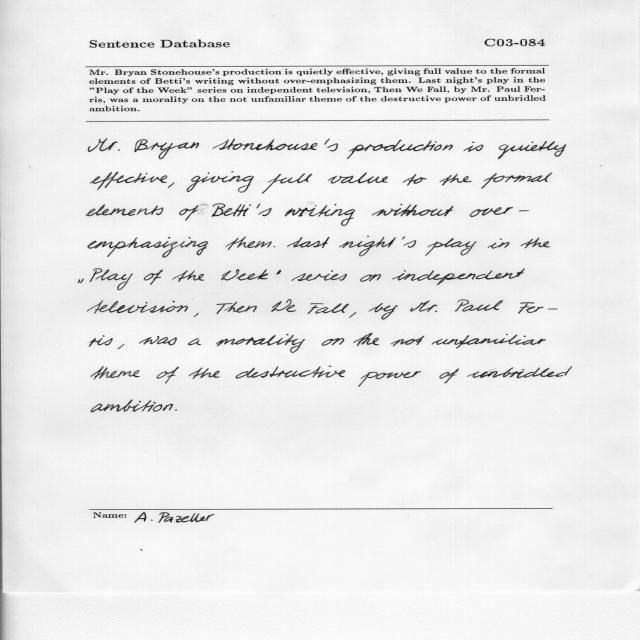 Sentence Database C03-084
Mr. Bryan Stonehouse's production is quietly effective, giving full value to the formal
elements of Betti's writing without over-emphasizing them. Last night's play in the
"Play of the Week" series on independent television, Then We Fall, by Mr. Paul Fer-
ris, was a morality on the not unfamiliar theme of the destructive power of unbridled
ambition.
Mr. Bryan Stonehouse's production is quietly
effective, giving full value to the formal
elements of Betti's writing without over-
emphasizing them. Last night's play in the
"Play of the Week" series on independent
television, Then We Fall, by Mr. Paul Fer-
ris, was a morality on the not unfamiliar
theme of the destructive power of unbridled
ambition.
Name: A. Pazeller